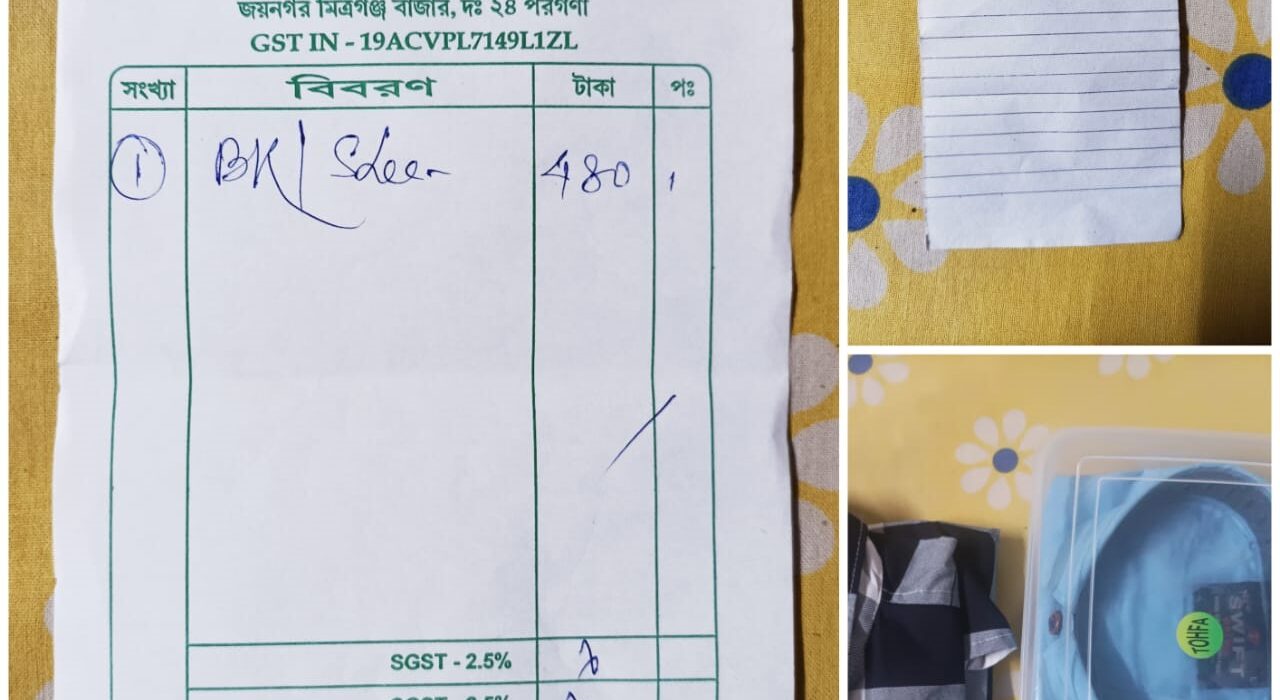 জয়নগর মিত্রগঞ্জ বাজার, দঃ ২৪ পরগণা
GST IN - 19ACVPL7149L1ZL
সংখ্যা বিবরণ টাকা পঃ
1 BK/ 480
SGST - 2.5%
TOHFA
SWIFT